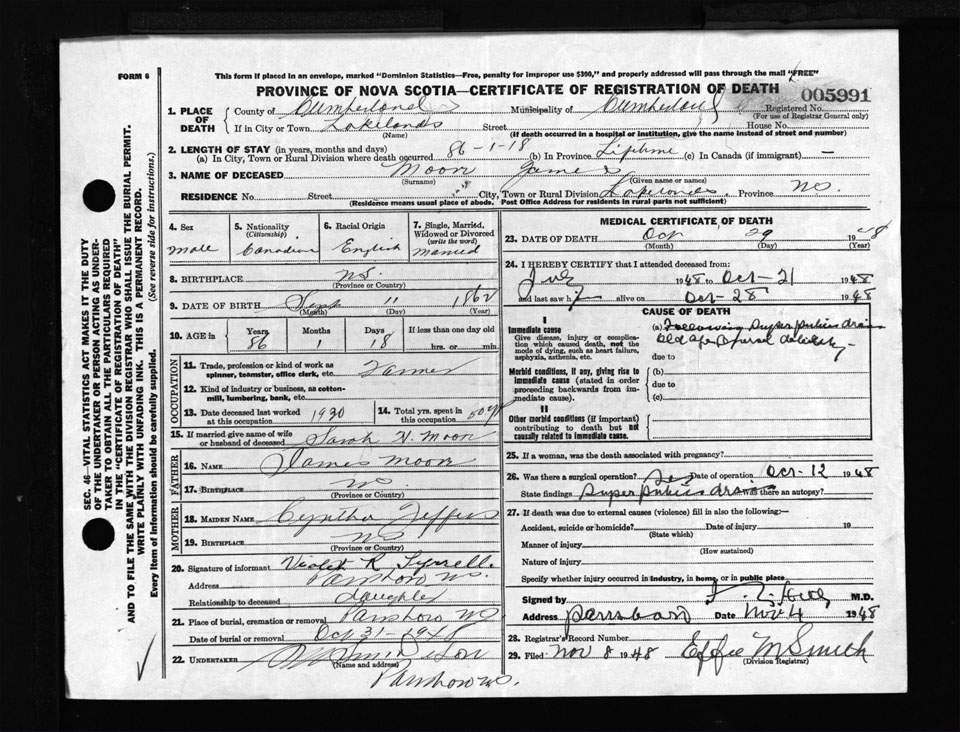 FORM 6
This form if placed in an envelope, marked "Dominion Statistics—Free, penalty for improper use $300," and properly addressed will pass through the mail "FREE"
PROVINCE OF NOVA SCOTIA—CERTIFICATE OF REGISTRATION OF DEATH
005991
1. PLACE OF DEATH County of Cumberland Municipality of Cumberland Registered No.
(For use of Registrar General only)
If in City or Town Lakelands Street House No.
(Name) (If death occurred in a hospital or institution, give the name instead of street and number)
2. LENGTH OF STAY (in years, months and days)
(a) In City, Town or Rural Division where death occurred 86-1-18 (b) In Province Lifetime (c) In Canada (if immigrant) —
3. NAME OF DECEASED Moon James
(Surname) (Given name or names)
RESIDENCE No. Street City, Town or Rural Division Lakelands Province NS.
(Residence means usual place of abode. Post Office Address for residents in rural parts not sufficient)
SEC. 46—VITAL STATISTICS ACT MAKES IT THE DUTY
OF THE UNDERTAKER OR PERSON ACTING AS UNDER-
TAKER TO OBTAIN ALL THE PARTICULARS REQUIRED
IN THE "CERTIFICATE OF REGISTRATION OF DEATH"
AND TO FILE THE SAME WITH THE DIVISION REGISTRAR WHO SHALL ISSUE THE BURIAL PERMIT.
WRITE PLAINLY WITH UNFADING INK. THIS IS A PERMANENT RECORD.
Every item of Information should be carefully supplied. (See reverse side for instructions.)
4. Sex Male
5. Nationality (Citizenship) Canadian
6. Racial Origin English
7. Single, Married, Widowed or Divorced (write the word) Married
8. BIRTHPLACE NS.
(Province or Country)
9. DATE OF BIRTH Sept 11 1862
(Month) (Day) (Year)
10. AGE in Years 86 Months 1 Days 18 If less than one day old
hrs. or min.
OCCUPATION
11. Trade, profession or kind of work as spinner, teamster, office clerk, etc. Farmer
12. Kind of industry or business, as cotton-mill, lumbering, bank, etc.
13. Date deceased last worked at this occupation 1930
14. Total yrs. spent in this occupation 50 yrs
15. If married give name of wife or husband of deceased Sarah N. Moon
FATHER
16. NAME James Moon
17. BIRTHPLACE NS.
(Province or Country)
MOTHER
18. MAIDEN NAME Cyntha Jeffers
19. BIRTHPLACE NS
(Province or Country)
20. Signature of informant Violet R Tyrrell
Address Parrsboro NS.
Relationship to deceased daughter
21. Place of burial, cremation or removal Parrsboro NS
Date of burial or removal Oct 31-1948
22. UNDERTAKER Smith & Son
(Name and address)
Parrsboro NS.
MEDICAL CERTIFICATE OF DEATH
23. DATE OF DEATH Oct 29 1948
(Month) (Day) (Year)
24. I HEREBY CERTIFY that I attended deceased from:
July 1948 to Oct-21 1948
and last saw h alive on Oct-28 1948
CAUSE OF DEATH
I
Immediate cause
Give disease, injury or complication which caused death, not the mode of dying, such as heart failure, asphyxia, asthenia, etc.
(a) Following Super pubic drain
Old age & general debility
due to
Morbid conditions, if any, giving rise to immediate cause (stated in order of proceeding backwards from immediate cause).
(b)
due to
(c)
II
Other morbid conditions (if important) contributing to death but not causally related to immediate cause.
25. If a woman, was the death associated with pregnancy?
26. Was there a surgical operation? Yes Date of operation Oct-12 1948
State findings Super pubic drain Was there an autopsy?
27. If death was due to external causes (violence) fill in also the following:—
Accident, suicide or homicide? Date of injury 19
(State which)
Manner of injury
(How sustained)
Nature of injury
Specify whether injury occurred in industry, in home, or in public place
Signed by M.D.
Address Parrsboro Date Nov 4 1948
28. Registrar's Record Number
29. Filed Nov 8 1948 Effie M Smith
(Division Registrar)